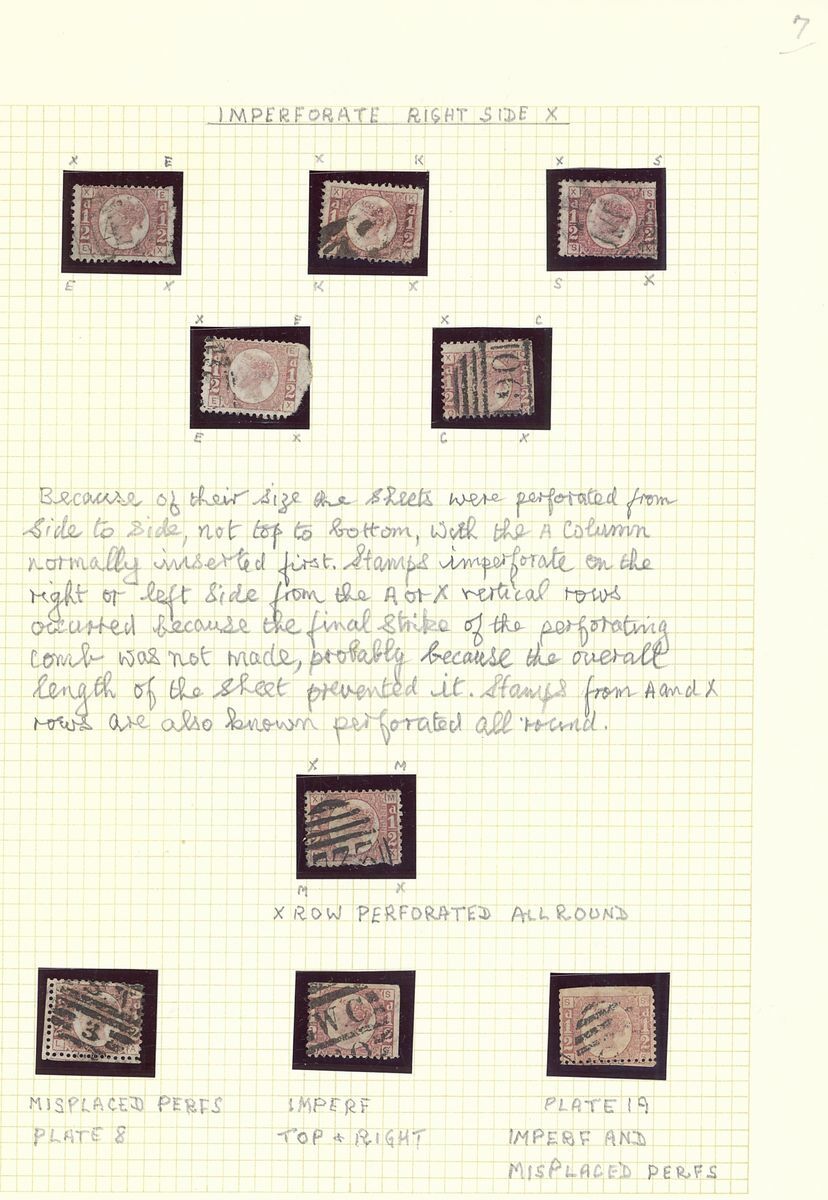 7
IMPERFORATE RIGHT SIDE X
X E X K X S
E X K X S X
X E X C
E X C X
Because of their size the sheets were perforated from
side to side, not top to bottom, with the A column
normally inserted first. Stamps imperforate on the
right or left side from the A or X vertical rows
occurred because the final strike of the perforating
comb was not made, probably because the overall
length of the sheet prevented it. Stamps from A and X
rows are also known perforated all round.
X M
M X
X ROW PERFORATED ALL ROUND
MISPLACED PERFS IMPERF PLATE 19
PLATE 8 TOP + RIGHT IMPERF AND
MISPLACED PERFS